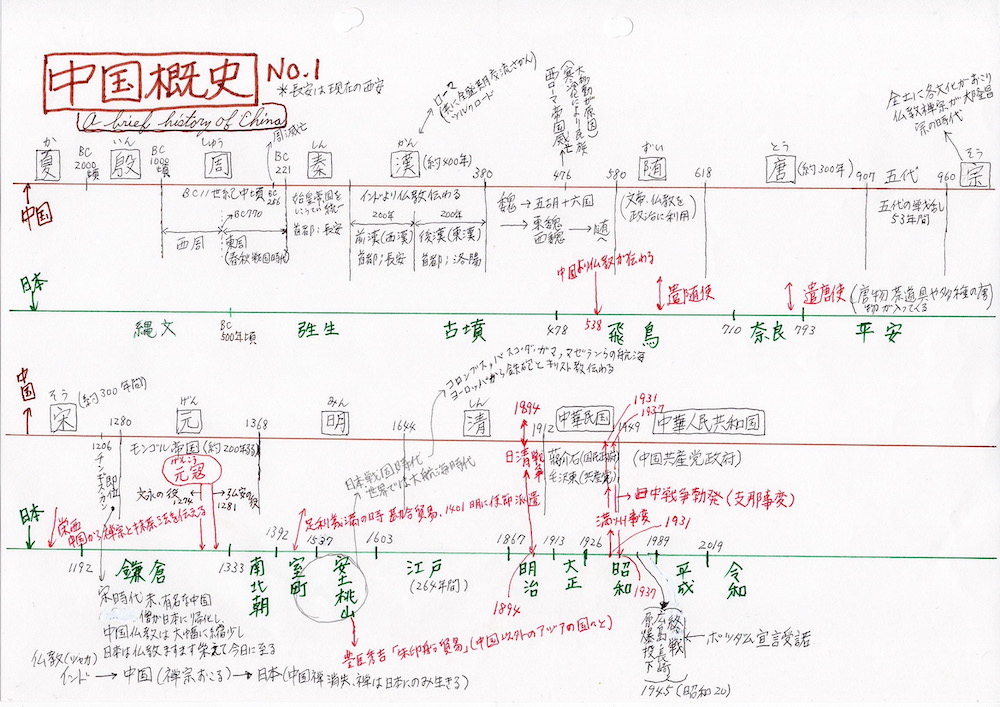 中国概史 No.1
A brief history of China
*長安は現在の西安
ローマ
シルクロード
(寒冷化により民族
大移動が原因)
西ローマ帝国滅亡
全土に各文化がおこり
仏教禅宗が大隆昌
宗の時代
か いん しゅう しん かん ずい とう そう
夏 BC2000頃 殷 BC1000頃 周 周滅亡 BC221 秦 漢 (約400年) 隋 唐 (約300年) 五代 宗
BC256
380 476 580 618 907 960
中国
BC11世紀中頃
BC770
西周
東周
(春秋戦国時代)
始皇帝国を
首都;長安
インドより仏教伝わる
200年 200年
前漢(西漢) 後漢(東漢)
首都;長安 首都;洛陽
魏→五胡十六国
→東魏
西魏
→随へ
(文帝、仏教を
政治に利用)
五代の戦乱
53年間
日本
中国より仏教が伝わる
遣随使
遣唐使
(唐物茶道具や多種の唐
物が入ってくる
縄文 BC500年頃 弥生 古墳 478 538 飛鳥 710 奈良 793 平安
コロンブス、バスコ・ダ・ガマ、マゼランらの航海
ヨーロッパから鉄砲とキリスト教伝わる
中国
そう (約300年間) げん みん しん
宋 1280 元 1368 明 1644 清 1894 1912 中華民国 1931 1937 1949 中華人民共和国
1206
チンギスカン即位
モンゴル帝国(約200年弱)
げんこう
元冦
文永の役
1274
弘安の役
1281
日本戦国時代
世界では大航海時代
日清戦争
蒋介石(国民政府)
毛沢東(共産党)
(中国共産党政府)
日中戦争勃発(支那事変)
満州事変
1931
日本
栄西
中国から禅宗と抹茶法を伝える
足利義満の時 勘合貿易、1401 明に使節派遣
1192 鎌倉 1333 南北朝 1392 室町 1537 安土桃山 1603 江戸 1867 明治 1913 大正 1926 昭和 1989 平成 2019 令和
(264年間)
1894
1937
宋時代末、有名な中国
僧が日本に帰化し、
中国仏教は大幅に縮少し
日本は仏教ますます栄えて今日に至る
豊臣秀吉「朱印船貿易」(中国以外のアジアの国々と)
終戦
広島長崎
原爆投下
ポツダム宣言受諾
1945(昭和20)
仏教(シャカ)
インド→中国(禅宗おこる)→日本(中国禅消失、禅は日本にのみ生きる)